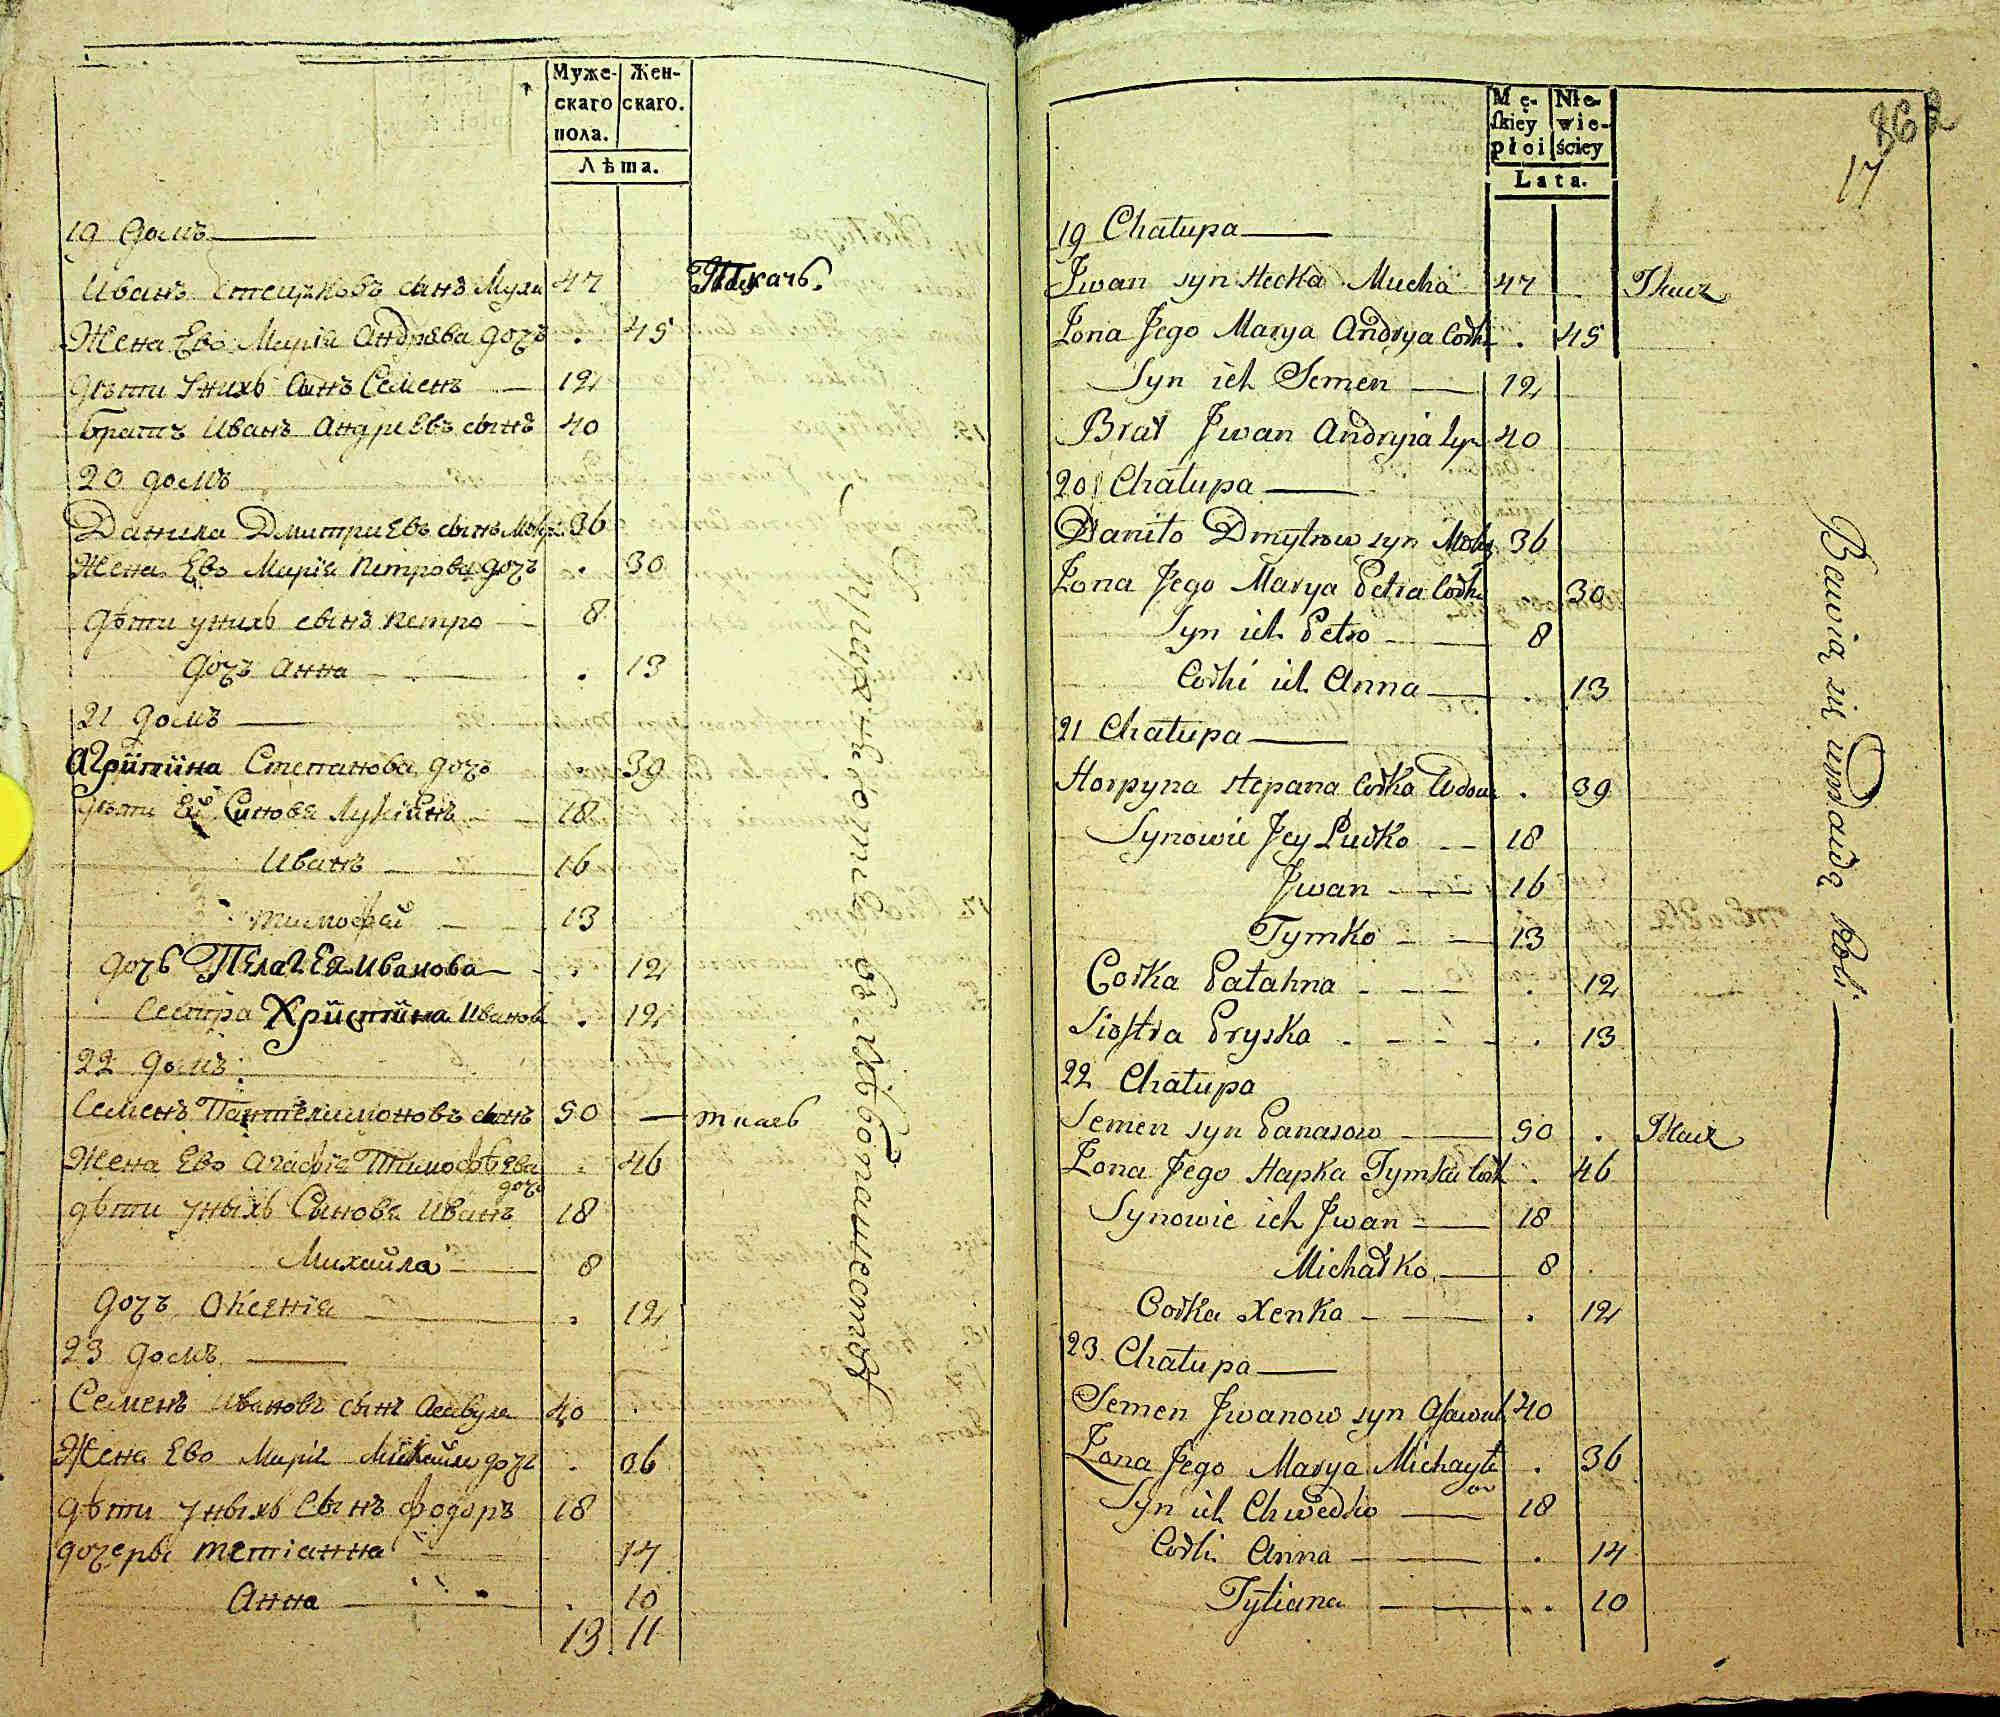 Муже-
скаго
пола.
Жен-
скаго.
Лѣта.
19 домъ
Иванъ Стецковъ сынъ Муха 47 Ткачь.
Жена Ево Марія Андрѣва дочъ . 45
дѣти унихъ сынъ Семенъ 12
братъ Иванъ Андриевъ сынъ 40
20 домъ
Данила Дмитриевъ сынъ 36
Жена Ево Марія Петрова дочъ . 30
дѣти унихъ сынъ Петро 8
дочъ Анна . 13
21 домъ
Агрипина Степанова дочъ . 39
дѣти Ей Синовя Лукіянъ 18
Иванъ 16
Тимофей 13
дочь Пелагея Иванова . 12
Сестра Христина Иванов . 12
22 домъ
Семенъ Пантелимоновъ сынъ 50 — ткачь
Жена Ево Агафія Тимофѣева дочъ . 46
дѣти уныхъ Сыновя Иванъ 18
Михайла 8
дочъ Оксенія . 12
23 домъ
Семенъ Ивановъ сынъ Асавула 40 .
Жена Ево Марія Михайла дочъ . 36
дѣти уныхъ Сынъ Фодоръ 18
дочеръ Тетіанна 14
Анна . 10
13 11
Упражняются въ хлѣбопашество
Mę-
skiey
płci
Nie-
wie-
ściey
Lata.
262
17
19 Chałupa
Jwan syn Stecka Mucha 47 . Tkacz
Żona Jego Marya Andryia Corka . 45
Syn ich Semen 12
Brat Jwan Andryia syn 40
20 Chałupa
Daniło Dmytrow syn 36
Żona Jego Marya Petra Corka 30
Syn ich Petro 8
Corki ich Anna . 13
21 Chałupa
Horpyna Stepana Corka Wdowa . 39
Synowie Jey Lucko 18
Jwan 16
Tymko 13
Corka Pałahna . 12
Siostra Pryska . 13
22 Chałupa
Semen syn Panasow 50 . Tkacz
Żona Jego Hapka Tymka Cork . 46
Synowie ich Jwan 18
Michałko 8
Corka Xenka . 12
23 Chałupa
Semen Jwanow syn Asawuł 40
Żona Jego Marya Michayło . 36
Syn ich Chwedko 18
Corki Anna . 14
Tytiana . 10
Bawią się uprawą Roli